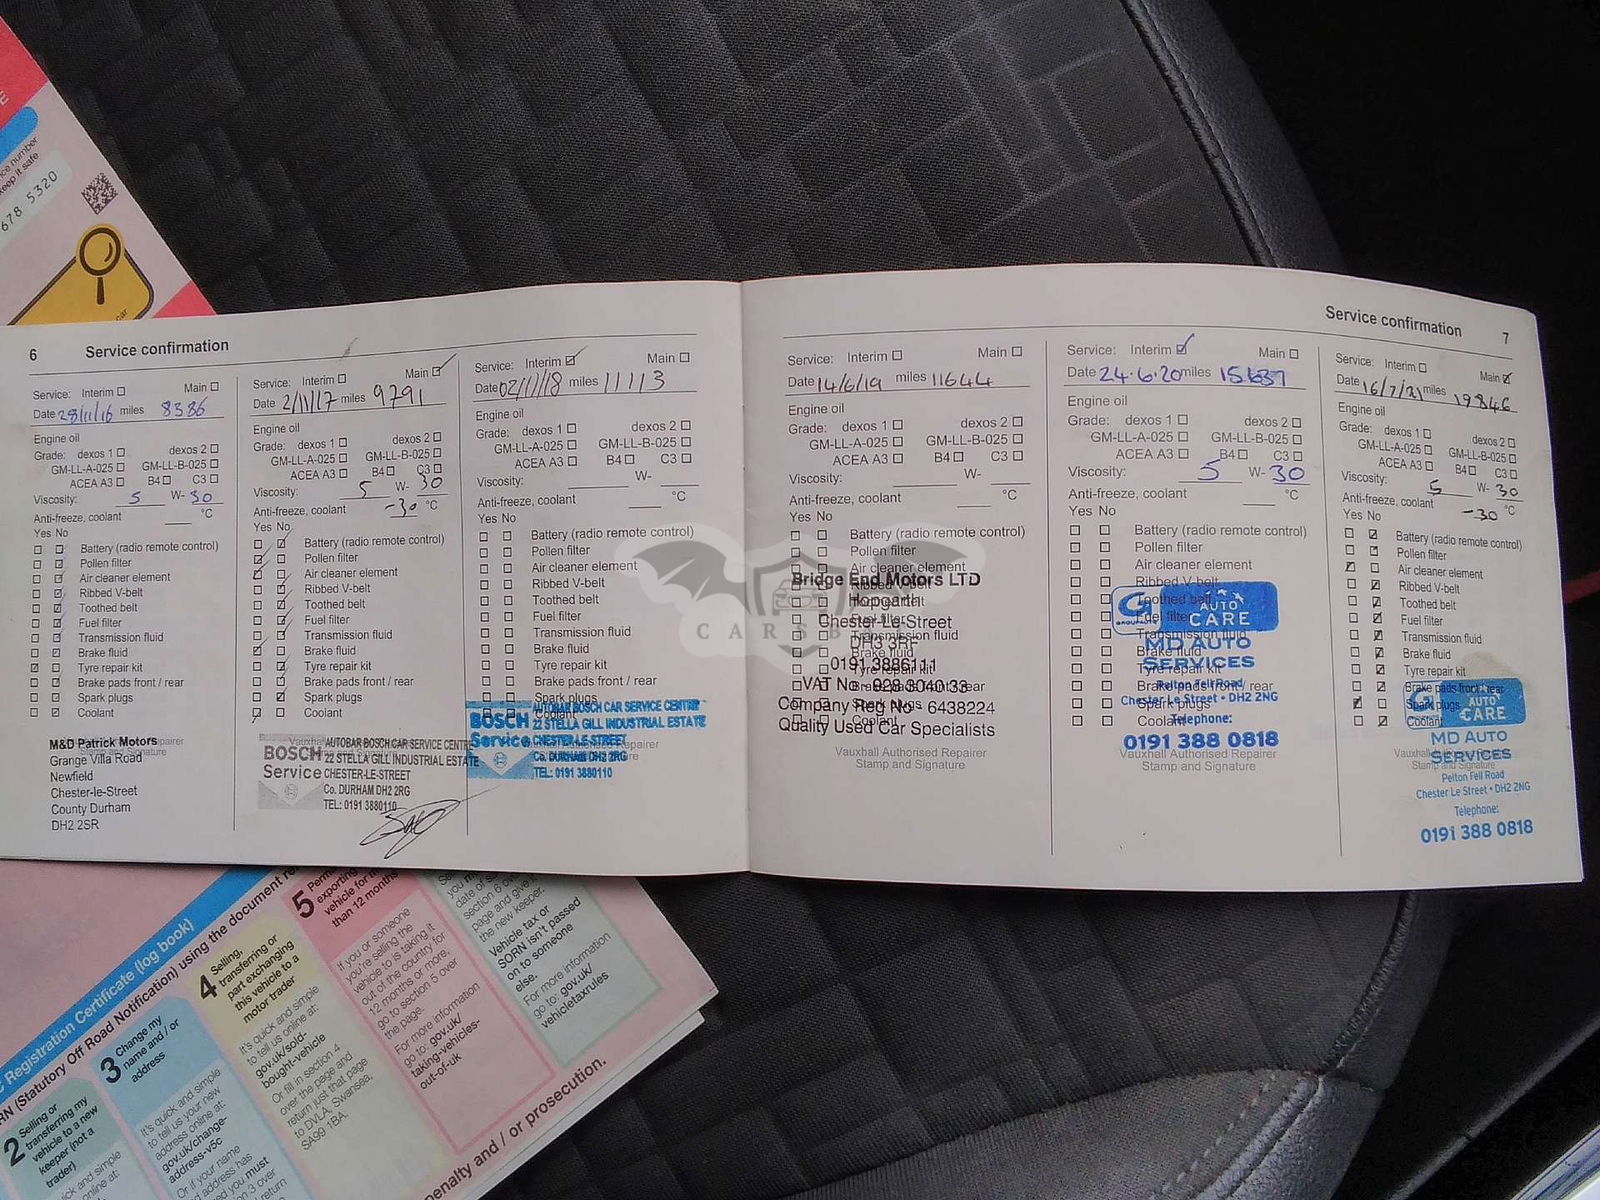 6 Service confirmation
Service: Interim Main
Date 28/11/16 miles 8386
Engine oil
Grade: dexos 1 dexos 2
GM-LL-A-025 GM-LL-B-025
ACEA A3 B4 C3
Viscosity: 5 W- 30
Anti-freeze, coolant °C
Yes No
Battery (radio remote control)
Pollen filter
Air cleaner element
Ribbed V-belt
Toothed belt
Fuel filter
Transmission fluid
Brake fluid
Tyre repair kit
Brake pads front / rear
Spark plugs
Coolant
M&D Patrick Motors
Grange Villa Road
Newfield
Chester-le-Street
County Durham
DH2 2SR
Service: Interim Main
Date 2/11/17 miles 9791
Engine oil
Grade: dexos 1 dexos 2
GM-LL-A-025 GM-LL-B-025
ACEA A3 B4 C3
Viscosity: 5 W- 30
Anti-freeze, coolant -30 °C
Yes No
Battery (radio remote control)
Pollen filter
Air cleaner element
Ribbed V-belt
Toothed belt
Fuel filter
Transmission fluid
Brake fluid
Tyre repair kit
Brake pads front / rear
Spark plugs
Coolant
BOSCH Service
AUTOBAR BOSCH CAR SERVICE CENTRE
22 STELLA GILL INDUSTRIAL ESTATE
CHESTER-LE-STREET
Co. DURHAM DH2 2RG
TEL: 0191 3880110
Service: Interim Main
Date 02/11/18 miles 11113
Engine oil
Grade: dexos 1 dexos 2
GM-LL-A-025 GM-LL-B-025
ACEA A3 B4 C3
Viscosity: W-
Anti-freeze, coolant °C
Yes No
Battery (radio remote control)
Pollen filter
Air cleaner element
Ribbed V-belt
Toothed belt
Fuel filter
Transmission fluid
Brake fluid
Tyre repair kit
Brake pads front / rear
Spark plugs
Coolant
BOSCH Service
AUTOBAR BOSCH CAR SERVICE CENTRE
22 STELLA GILL INDUSTRIAL ESTATE
CHESTER-LE-STREET
Co. DURHAM DH2 2RG
TEL: 0191 3880110
Service confirmation 7
Service: Interim Main
Date 14/6/19 miles 11644
Engine oil
Grade: dexos 1 dexos 2
GM-LL-A-025 GM-LL-B-025
ACEA A3 B4 C3
Viscosity: W-
Anti-freeze, coolant °C
Yes No
Battery (radio remote control)
Pollen filter
Air cleaner element
Bridge End Motors LTD
Hopgarth
Chester-Le-Street
DH3 3RF
0191 3886111
VAT No - 928 3040 33
Company Reg No - 6438224
Quality Used Car Specialists
Vauxhall Authorised Repairer
Stamp and Signature
Service: Interim Main
Date 24.6.20 miles 15637
Engine oil
Grade: dexos 1 dexos 2
GM-LL-A-025 GM-LL-B-025
ACEA A3 B4 C3
Viscosity: 5 W- 30
Anti-freeze, coolant °C
Yes No
Battery (radio remote control)
Pollen filter
Air cleaner element
Ribbed V-belt
Toothed belt
Fuel filter
Transmission fluid
Brake fluid
Tyre repair kit
Brake pads front / rear
Spark plugs
Coolant
AUTO CARE
MD AUTO
SERVICES
Pelton Fell Road
Chester Le Street • DH2 2NG
Telephone:
0191 388 0818
Vauxhall Authorised Repairer
Stamp and Signature
Service: Interim Main
Date 16/7/21 miles 19846
Engine oil
Grade: dexos 1 dexos 2
GM-LL-A-025 GM-LL-B-025
ACEA A3 B4 C3
Viscosity: 5 W- 30
Anti-freeze, coolant -30 °C
Yes No
Battery (radio remote control)
Pollen filter
Air cleaner element
Ribbed V-belt
Toothed belt
Fuel filter
Transmission fluid
Brake fluid
Tyre repair kit
Brake pads front / rear
Spark plugs
Coolant
AUTO CARE
MD AUTO
SERVICES
Pelton Fell Road
Chester Le Street • DH2 2NG
Telephone:
0191 388 0818
678 5320
keep it safe
Registration Certificate (log book)
(Statutory Off Road Notification) using the document
2 Selling or
transferring my
vehicle to a new
keeper (not a
trader)
3 Change my
name and / or
address
It's quick and simple
to tell us your new
address online at:
gov.uk/change-
address-v5c
Or if your name
4 Selling,
transferring or
part exchanging
this vehicle to a
motor trader
It's quick and simple
to tell us online at:
gov.uk/sold-
bought-vehicle
Or fill in section 4
over the page and
return just that page
to DVLA, Swansea,
SA99 1BA.
5
exporting
vehicle for
than 12 months
If you or someone
you're selling the
vehicle to is taking it
out of the country for
12 months or more,
go to section 5 over
the page.
For more information
go to: gov.uk/
taking-vehicles-
out-of-uk
the new keeper.
Vehicle tax or
SORN isn't passed
on to someone
else.
For more information
go to: gov.uk/
vehicletaxrules
penalty and / or prosecution.